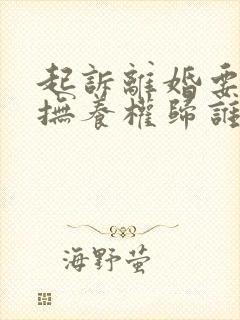 起訴離婚要
撫養權歸誰
海野萤